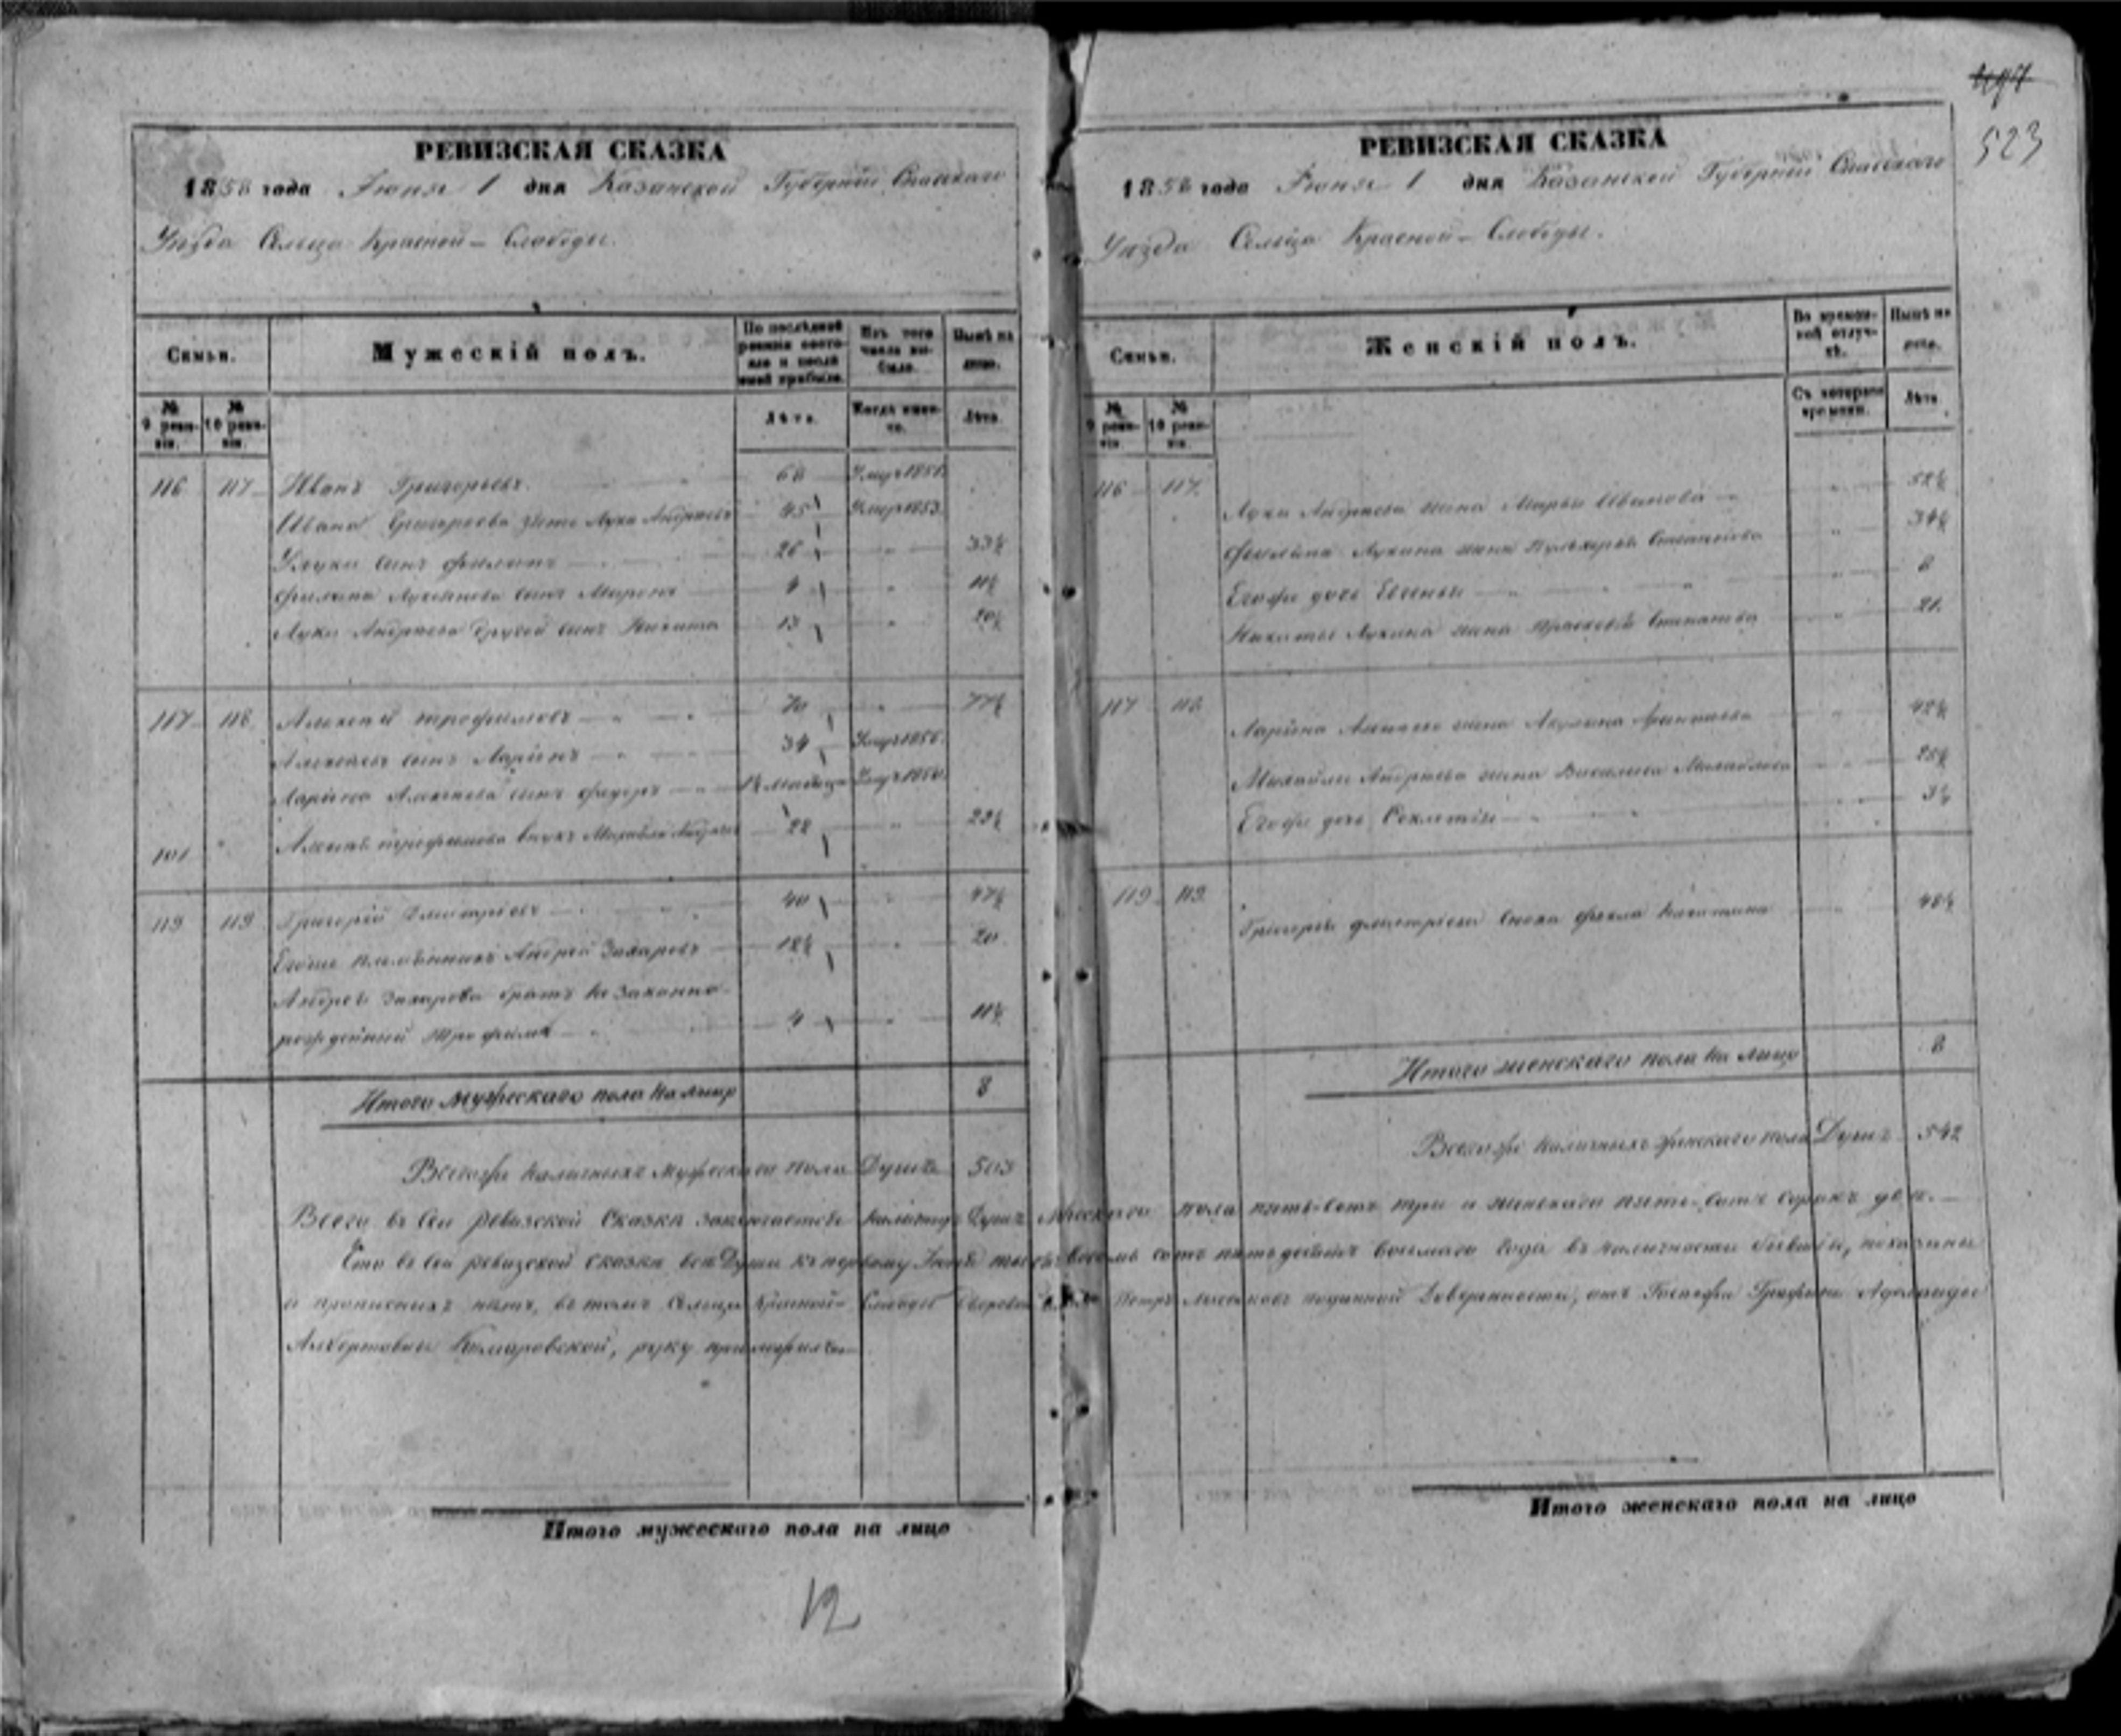 РЕВИЗСКАЯ СКАЗКА
1858 года Іюня 1 дня Казанской Губерніи Спасскаго
Уѣзда Сельца Красной-Слободы.
Семьи.
Мужескій полъ.
По послѣдней ревизіи состояло и послѣ оной прибыло.
Изъ того числа выбыло.
Нынѣ на лицо.
№ 9 ревизіи.
№ 10 ревизіи.
Лѣта.
Когда именно.
Лѣта.
116 117 Иванъ Григорьевъ 68 Умеръ 1851.
Ивана Григорьева зять Лука Андреевъ 45 Умеръ 1853.
У Луки сынъ Филипъ 26 " 33½
Филипа Лукоянова сынъ Миронъ 4 " 11½
Луки Андреева другой сынъ Никита 13 " 20½
117 118 Алексей Трофимовъ 70 " 77½
Алексеевъ сынъ Ларіонъ 34 Умеръ 1856.
Ларіона Алексеева сынъ Федоръ Умеръ 1850.
101 " Алексея Трофимова внукъ Михайла Андреевъ 22 " 29½
119 119 Григорій Дмитріевъ 40 " 47½
Егоже племянникъ Андрей Захаровъ 12½ " 20
Андрея Захарова братъ незаконно-
рожденный Трофимъ 4 " 11½
Итого мужескаго пола на лицо 8
Всегоже наличныхъ мужескаго пола Душъ 503
РЕВИЗСКАЯ СКАЗКА
1858 года Іюня 1 дня Казанской Губерніи Спасскаго
Уѣзда Сельца Красной-Слободы.
Семьи.
Женскій полъ.
Во временной отлучкѣ.
Нынѣ на лицо.
№ 9 ревизіи.
№ 10 ревизіи.
Съ котораго времени.
Лѣта.
116 117 Луки Андреева жена Марья Иванова " 52½
Филипа Лукина жена Пульхерья Степанова " 34½
Егоже дочь Евгенья " 8
Никиты Лукина жена Прасковья Степанова 21
117 118 Ларіона Алексеева жена Акулина " 42½
Михайлы Андреева жена Василиса Михайлова 25½
Егоже дочь Секлетія 3½
119 119 Григорья Дмитріева сноха Фекла 48½
Итого женскаго пола на лицо 8
Всегоже наличныхъ женскаго пола Душъ 542
Всего въ сей ревизской сказкѣ заключается наличныхъ Душъ мужескаго пола пять-сотъ три и женскаго пять-сотъ сорокъ двѣ.
Что въ сей ревизской сказкѣ всѣ Души къ первому Іюня тысяча восемь сотъ пятьдесятъ восьмаго года въ наличности бывшіе, показаны
и прописныхъ нѣтъ, въ томъ Сельца Красной-Слободы Петръ поданной Доверенности, отъ Госпожи Графини Аделаиды
Альбертовны Комаровской, руку приложилъ
Итого мужескаго пола на лицо
Итого женскаго пола на лицо
523
12